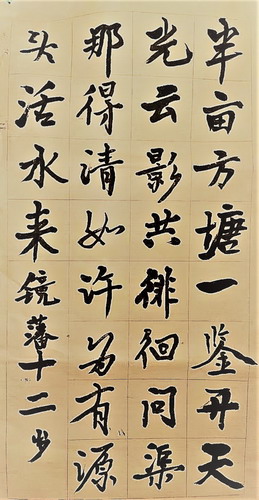 半亩方塘一鉴开天
光云影共徘徊问渠
那得清如许为有源
头活水来镜藩十二岁